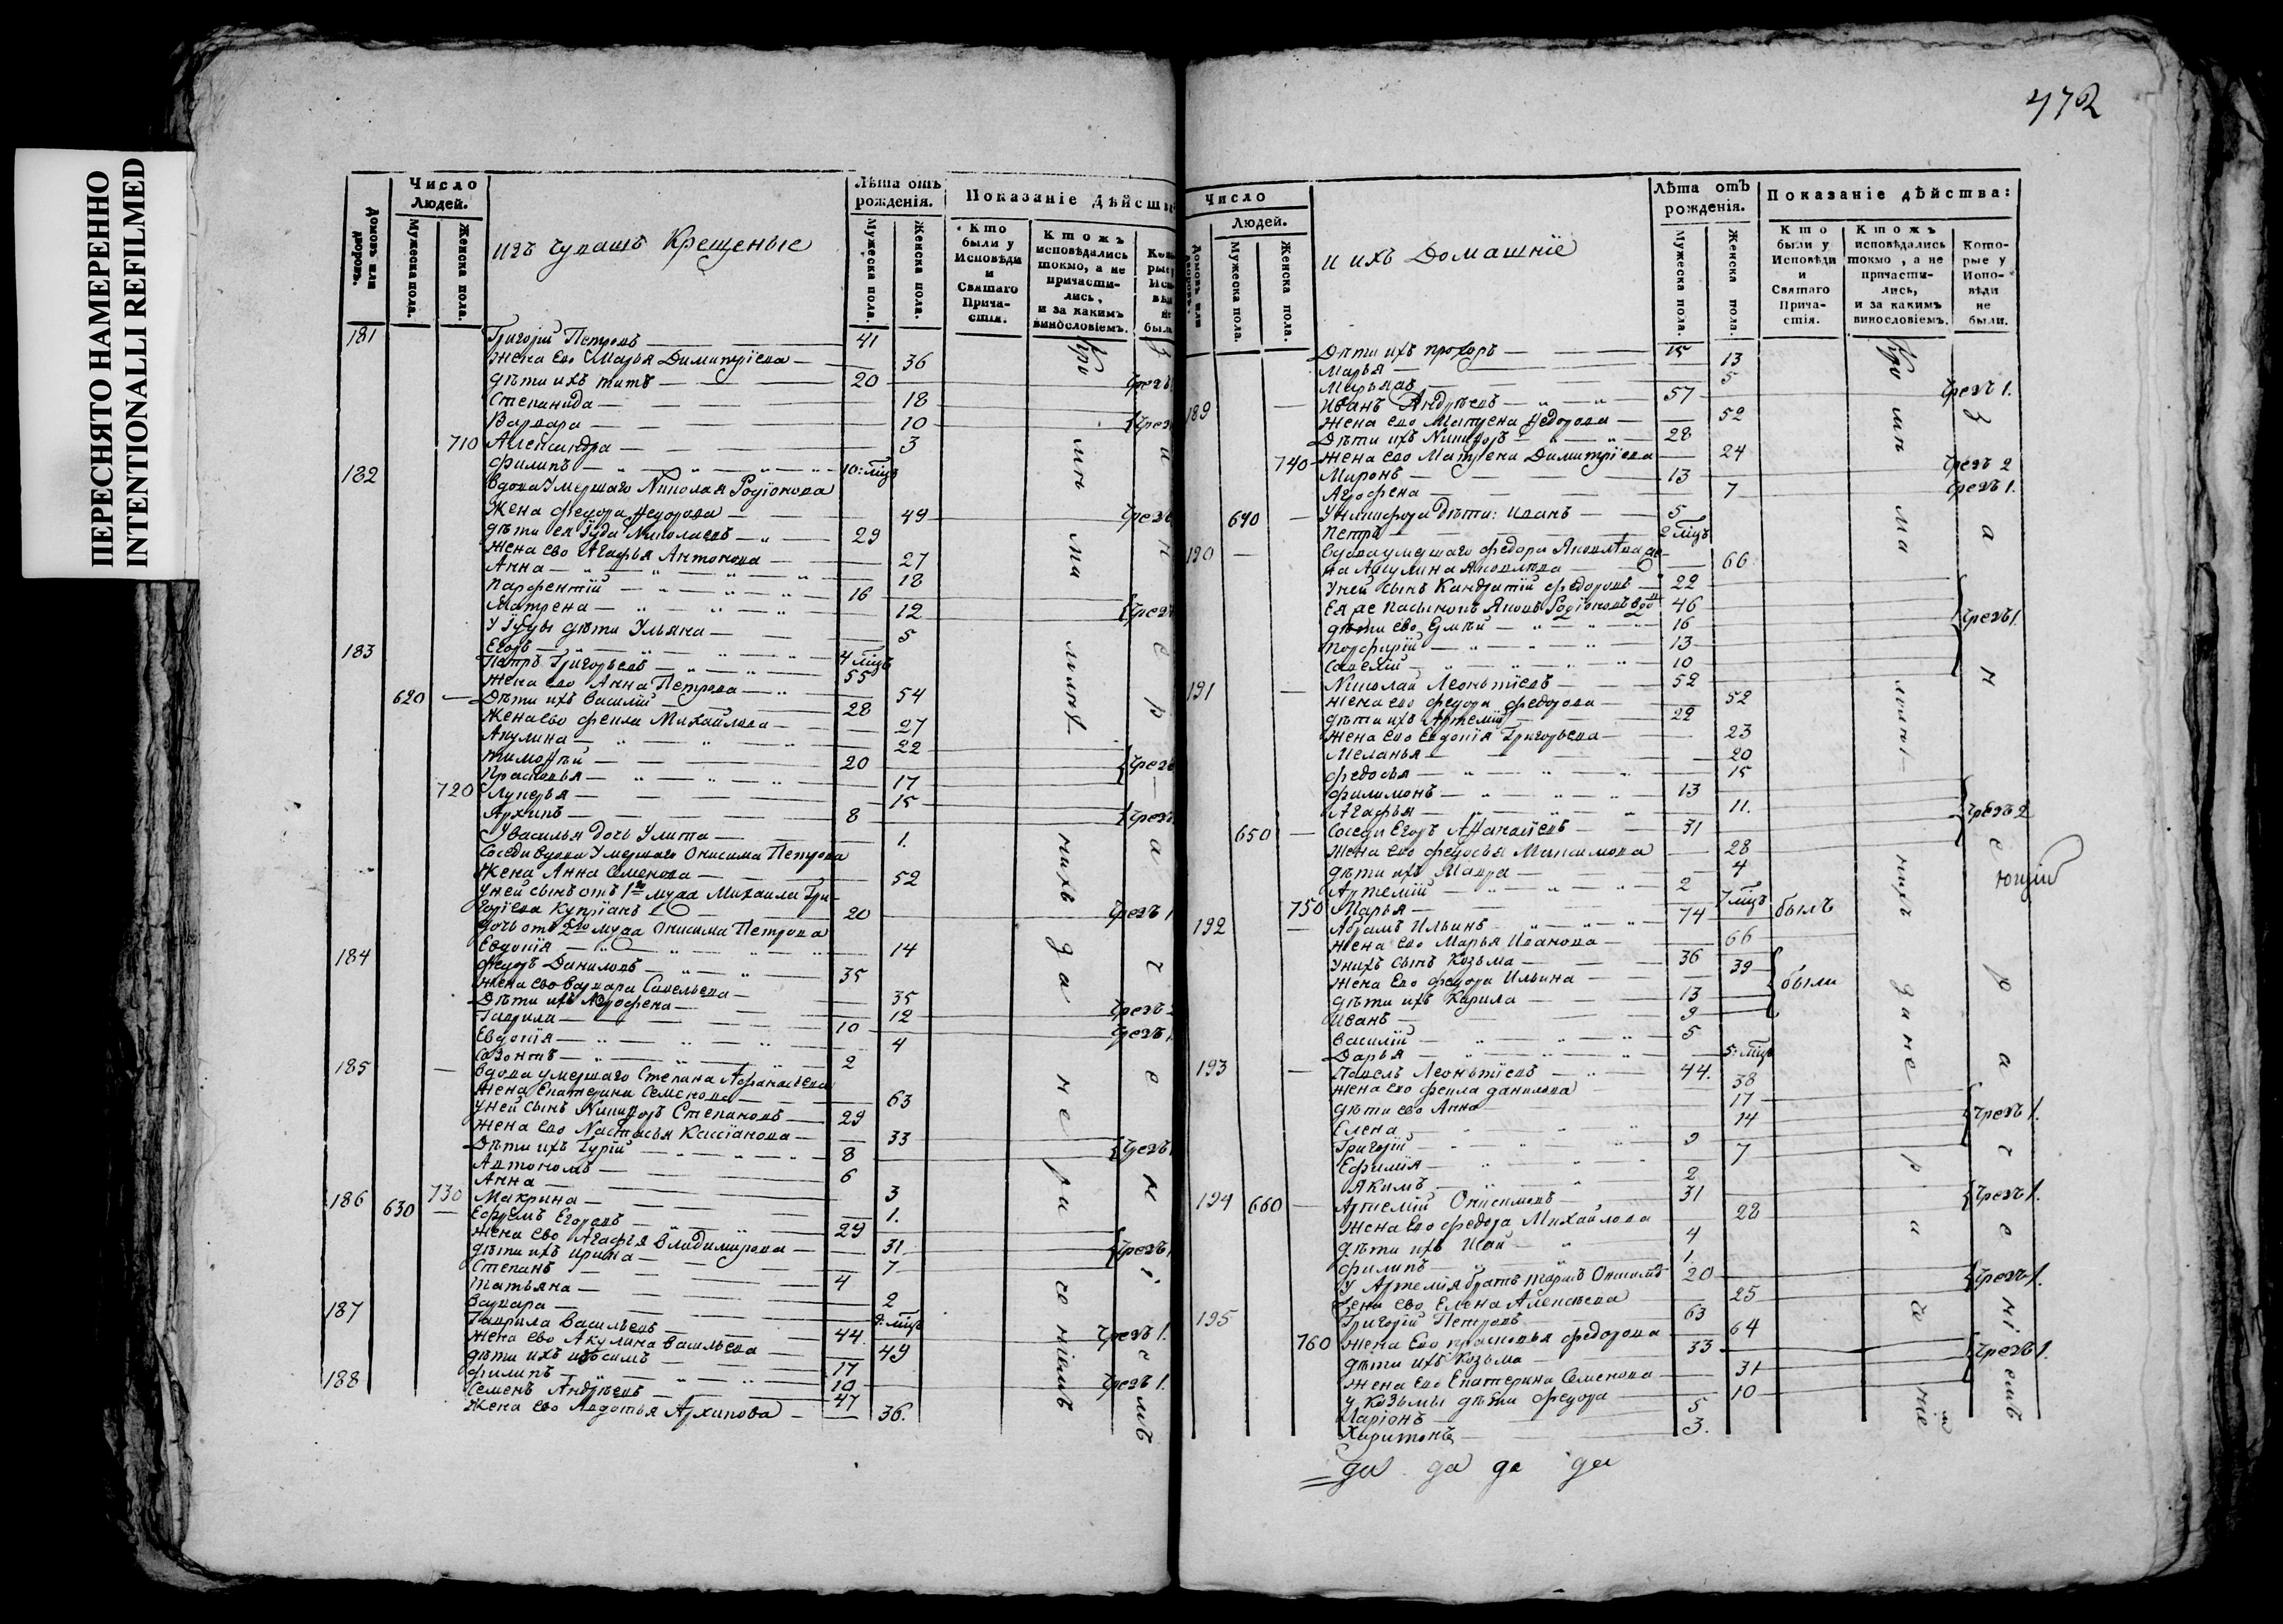 ПЕРЕСНЯТО НАМЕРЕННО
INTENTIONALLI REFILMED
472
Число
Людей.
Домовъ или дворовъ.
Мужеска пола.
Женска пола.
изъ чувашъ Крещеные
Лѣта отъ рожденія.
Мужеска пола.
Женска пола.
Показаніе дѣйств
Кто были у Исповѣди и Святаго Прича-стія.
Ктожъ исповѣдались токмо, а не причасти-лись, и за какимъ винословіемъ.
181 Григорій Петровъ 41
Жена ево Марья Димитріева 36
дѣти ихъ титъ 20
Степанида 18
Варвара 10
710 Александра 3
филипъ 10: мцъ
182 вдова Умершаго Николая Родіонова
Жена федора федорова 49
дѣти ея Іуда Николаевъ 29
Жена ево Агафья Антонова 27
Анна 18
Парфентій 16
Матрена 12
У Іуды дѣти Ульяна 5
Егоръ 4 мцъ
183 Петръ Григорьевъ 55
Жена ево Анна Петрова 54
620 Дѣти ихъ василій 28
Жена ево фекла Михайлова 27
Акулина 22
тимофѣй 20
Прасковья 17
720 Лукерья 15
Архипъ 8
У василья дочь Улита 1.
Соседи вдова Умершаго Онисима Петрова
Жена Анна Семенова 52
у ней сынъ отъ 1го мужа Михаила Гри-
горіева Купріянъ 20
дочь отъ 2го мужа Онисима Петрова
Евдокія 14
184 федоръ Даниловъ 35
жена ево варвара Савельева 35
Дѣти ихъ Агрофена 12
Гаврила 10
Евдокія 4
Созонтъ 2
185 вдова умершаго Степана Афанасьева
жена Екатерина Семенова 63
у ней сынъ Никифоръ Степановъ 29
жена ево Настасья Кассіанова 33
Дѣти ихъ Гурій 8
Автономъ 6
Анна 3
730 Макрина 1.
186 630 Ефремъ Егоровъ 29
жена ево Агафья владимирова 31
дѣти ихъ ирина 7
Степанъ 4
татьяна 2
варвара 9: мцъ
187 Гаврила Васильевъ 44.
жена ево Акулина васильева 49
дѣти ихъ изосимъ 17
филипъ 10
188 Семенъ Андреевъ 47
жена ево Авдотья Архипова 36.
Число
Людей.
Домовъ или дворовъ.
Мужеска пола.
Женска пола.
и ихъ Домашніе
Лѣта отъ рожденія.
Мужеска пола.
Женска пола.
Показаніе дѣйства:
Кто были у Исповѣди и Святаго Прича-стія.
Ктожъ исповѣдались токмо, а не причасти-лись, и за какимъ винословіемъ.
Кото-рые у Испо-вѣди не были.
Дѣти ихъ прохоръ 15
Марья 13
5
189 Иванъ Андреевъ 57
Жена ево Матрена федорова 52
Дѣти ихъ Никифоръ 28
740 Жена ево Матрена Димитріева 24
Миронъ 13
Агрофена 7
640 У никифора дѣти: Иванъ 5
Петръ 2 мцъ
190 вдова умершаго федора Яковлева же-
на Акулина Яковлева 66
У ней сынъ Кандратій федоровъ 22
Ея же пасынокъ Яковъ Родіоновъ 46
дѣти ево Емелѣй 16
Порфирій 13
Савелій 10
191 Николай Леонтіевъ 52
жена ево федора федорова 52
дѣти ихъ Артемій 22
жена ево Евдокія Григорьева 23
Меланья 20
федосья 15
филимонъ 13
Агафья 11.
650 Соседи Егоръ Афанасьевъ 31
жена ево федосья Максимова 28
дѣти ихъ Мавра 4
Артемій 2
750 Марья 7 мцъ
192 Абрамъ Ильинъ 74 былъ
жена ево Марья Иванова 66
у нихъ сынъ Козьма 36
жена Ево федора Ильина 39 были
дѣти ихъ Кирила 13
Иванъ 9
василій 5
Дарья 5: мцъ
193 Павелъ Леонтіевъ 44.
жена ево фекла данилова 38
дѣти ево Анна 17
Елена 14
Григорій 9
Ефимія 7
Якимъ 2
194 660 Артемій Онисимовъ 31
жена Ево федора Михайлова 28
дѣти ихъ Исай 4
филипъ 1.
У Артемія братъ Онисимовъ 20
жена ево Елена Алексѣева 25
195 Григорій Петровъ 63
760 жена Ево прасковья федорова 64
дѣти ихъ Козьма 33
жена Ево Екатерина Семенова 31
у Козьмы дѣти федора 10
Ларіонъ 5
Харитонъ 3.
да да да да